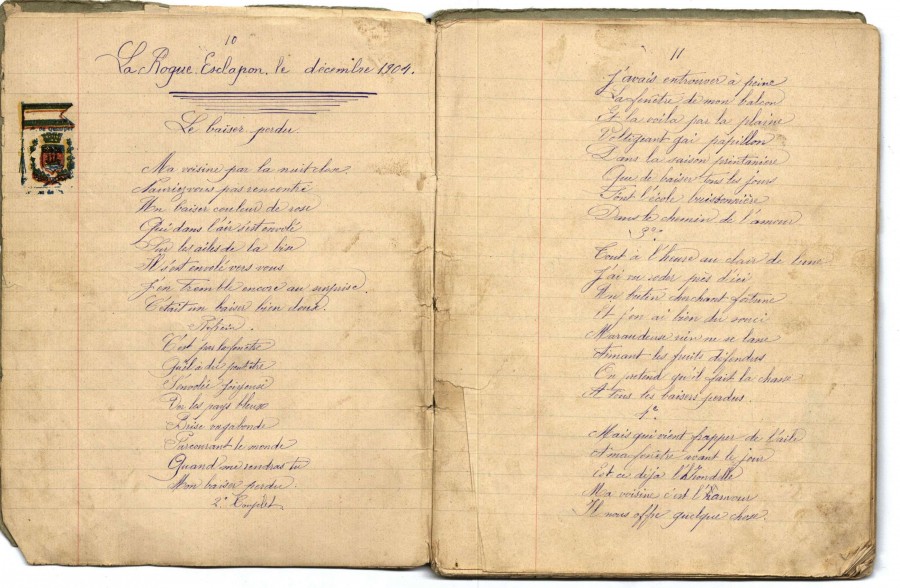 10
La Roque Esclapon. le décembre 1904.
Le baiser perdu
Ma voisine par la nuit close
Nauriez vous pas rencontré
Un baiser couleur de rose
Qui dans l'air s'est envolé
Sur les ailes de la
Il s'est envolé vers vous
J'en tremble encore au surprise.
C'était un baiser bien doux.
Refrain.
C'est par la fenêtre
Qu'il a du
Brise vagabonde
Parcourant le monde
Quand me rendras tu
Mon baiser perdu.
2e Couplet
11
J'avais entrouver à peine
La fenêtre de mon balcon
Et la voila par la plaine
Voltigeant gai papillon
Dans la saison printanière
Que de baiser tous les jours
Font l'école buissonnière
Dans le chemin de l'amour
3e
Tout à l'heure au clair de lune
J'ai vu roder près d'ici
Un butin cherchant fortune
Et j'en ai bien du souci
Maraudeuse rien ne se lasse
Aimant les fruits défendus
On pretend qu'il fait la chasse
A tous les baisers perdus.
Mais qui vient frapper de l'aile
A ma fenêtre avant le jour
Est ce deja l'Hirondelle
Ma voisine c'est l'amour
Il nous offre quelque chose.